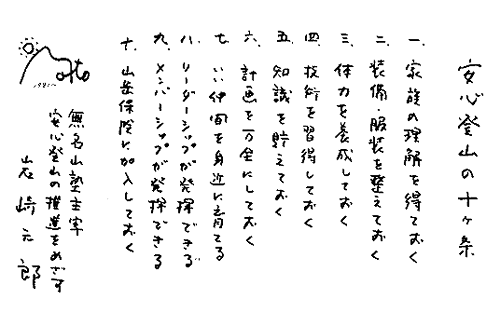 安心登山の十ヶ条
一、家族の理解を得ておく
二、装備・服装を整えておく
三、体力を養成しておく
四、技術を習得しておく
五、知識を貯えておく
六、計画を万全にしておく
七、いい仲間を身近に育てる
八、リーダーシップが発揮できる
九、メンバーシップが発揮できる
十、山岳保険に加入しておく
無名山塾主宰
安心登山の推進をめざす
岩崎元郎